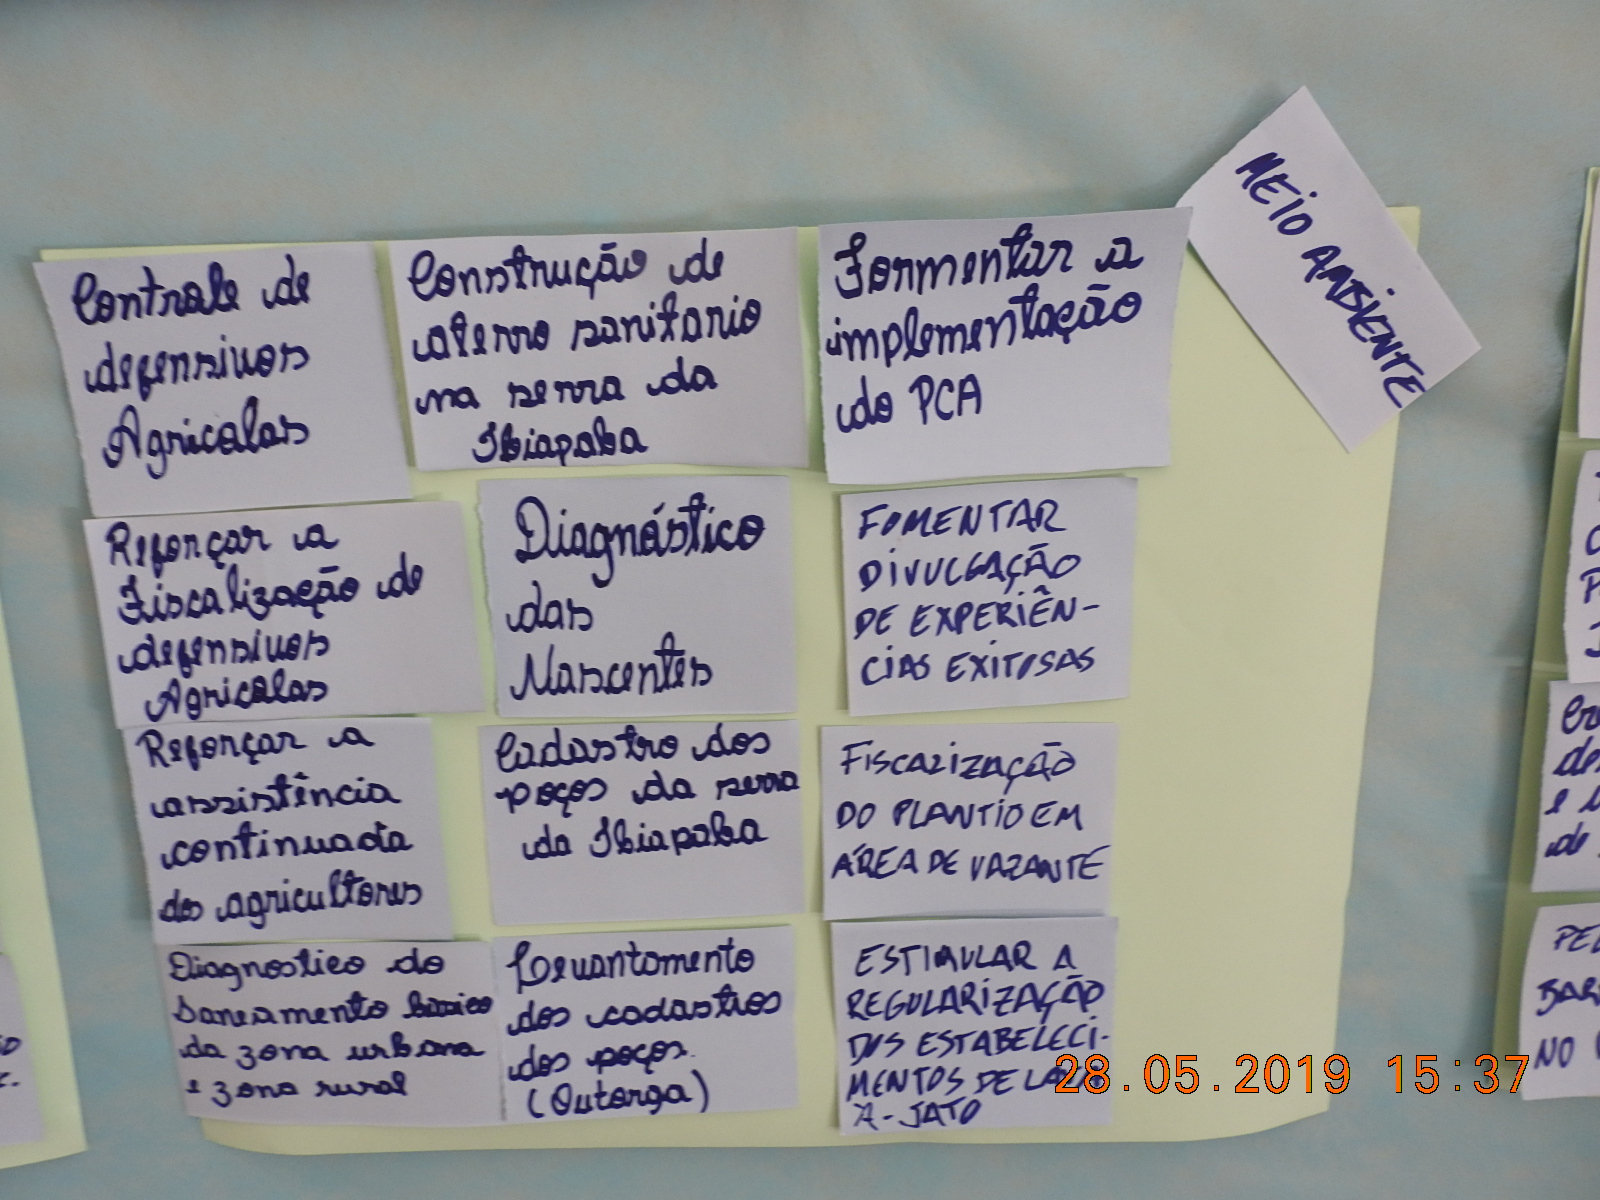 MEIO AMBIENTE
Controle de
defensivos
Agricolas
Construção de
aterro sanitario
na serra da
Ibiapaba
Formentar a
implementação
do PCA
Reforçar a
Fiscalização de
defensivos
Agricolas
Diagnóstico
das
Nascentes
FOMENTAR
DIVULGAÇÃO
DE EXPERIÊN-
CIAS EXITOSAS
Reforçar a
assistência
continuada
dos agricultores
Cadastro dos
poços da serra
da Ibiapaba
FISCALIZAÇÃO
DO PLANTIO EM
ÁREA DE VAZANTE
Diagnostico do
Saneamento básico
da zona urbana
e zona rural
Levantamento
dos cadastros
dos poços.
(Outorga)
ESTIMULAR A
REGULARIZAÇÃO
DOS ESTABELECI-
MENTOS DE LAVA
A-JATO
28.05.2019 15:37
de
NO